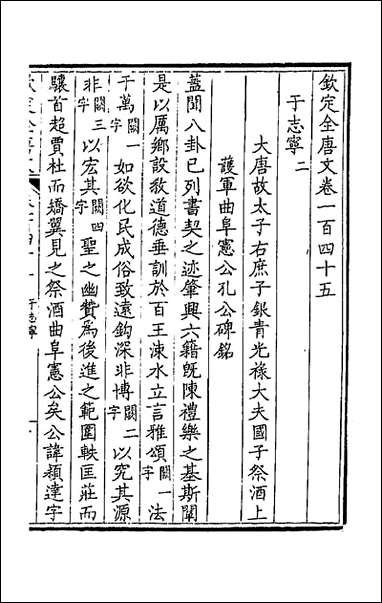 欽定全唐文卷一百四十五
于志寧二
大唐故太子右庶子銀青光祿大夫國子祭酒上
護軍曲阜憲公孔公碑銘
蓋聞八卦已列書契之迹肇興六籍旣陳禮樂之基斯闡
是以厲鄉設教道德垂訓於百王涑水立言雅頌闕一字法
于萬闕一字如欲化民成俗致遠鈎深非博闕二字以究其源
非闕三字以宏其闕四字聖之幽贊為後進之範圍軼匡莊而
驤首超賈杜而矯翼見之祭酒曲阜憲公矣公諱穎達字
于志寧
一